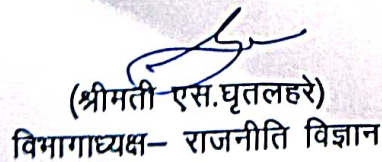 (श्रीमती एस.घृतलहरे)
विभागाध्यक्ष– राजनीति विज्ञान